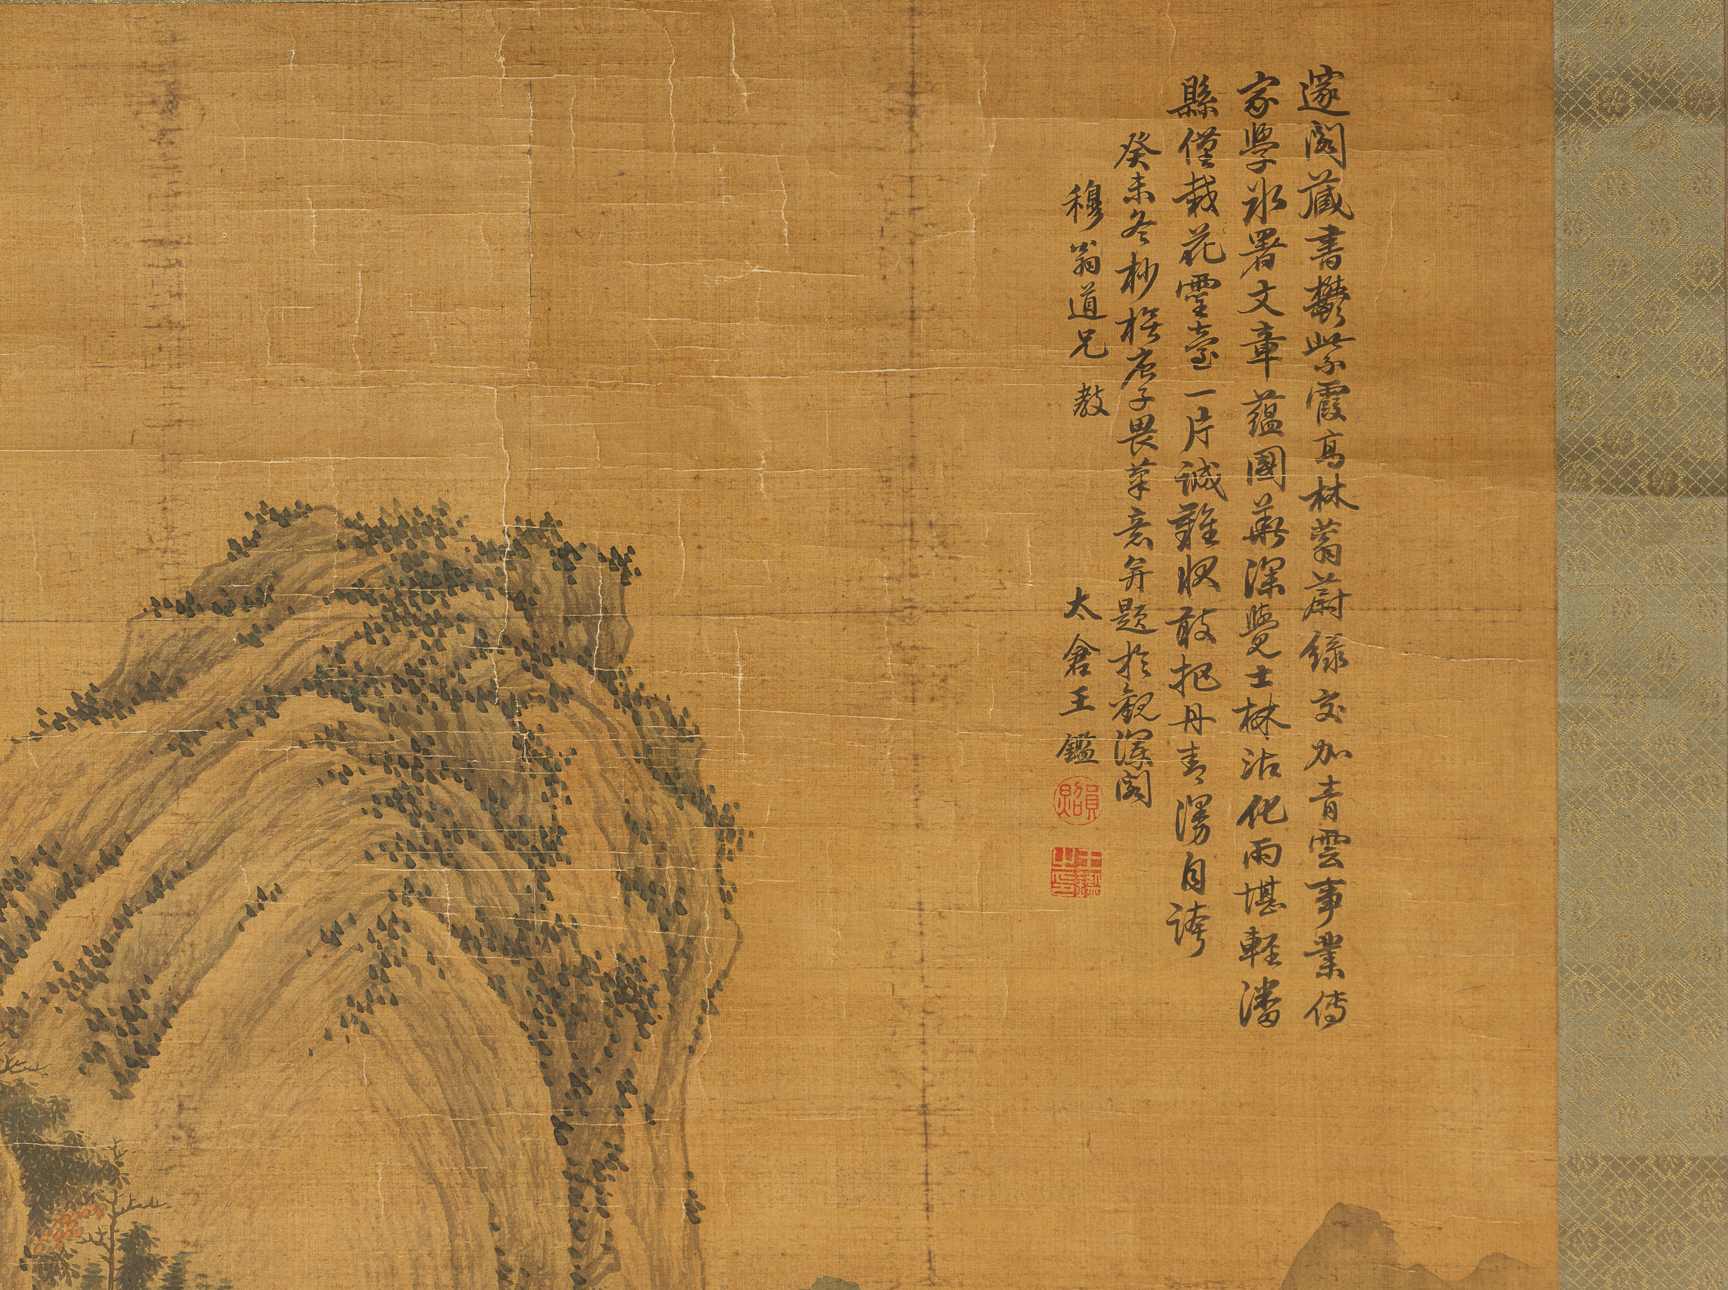 邃閣藏書鬱紫霞高林蓊蔚綠交加青雲事業傳
家學冰署文章蘊國華深覺士林沾化雨堪輕潘
縣僅栽花靈臺一片誠難狀敢把丹青漫自誇
癸未冬杪擬唐子畏筆意并題於觀深閣
穆翁道兄教
太倉王鑑
員照
王鑑之印